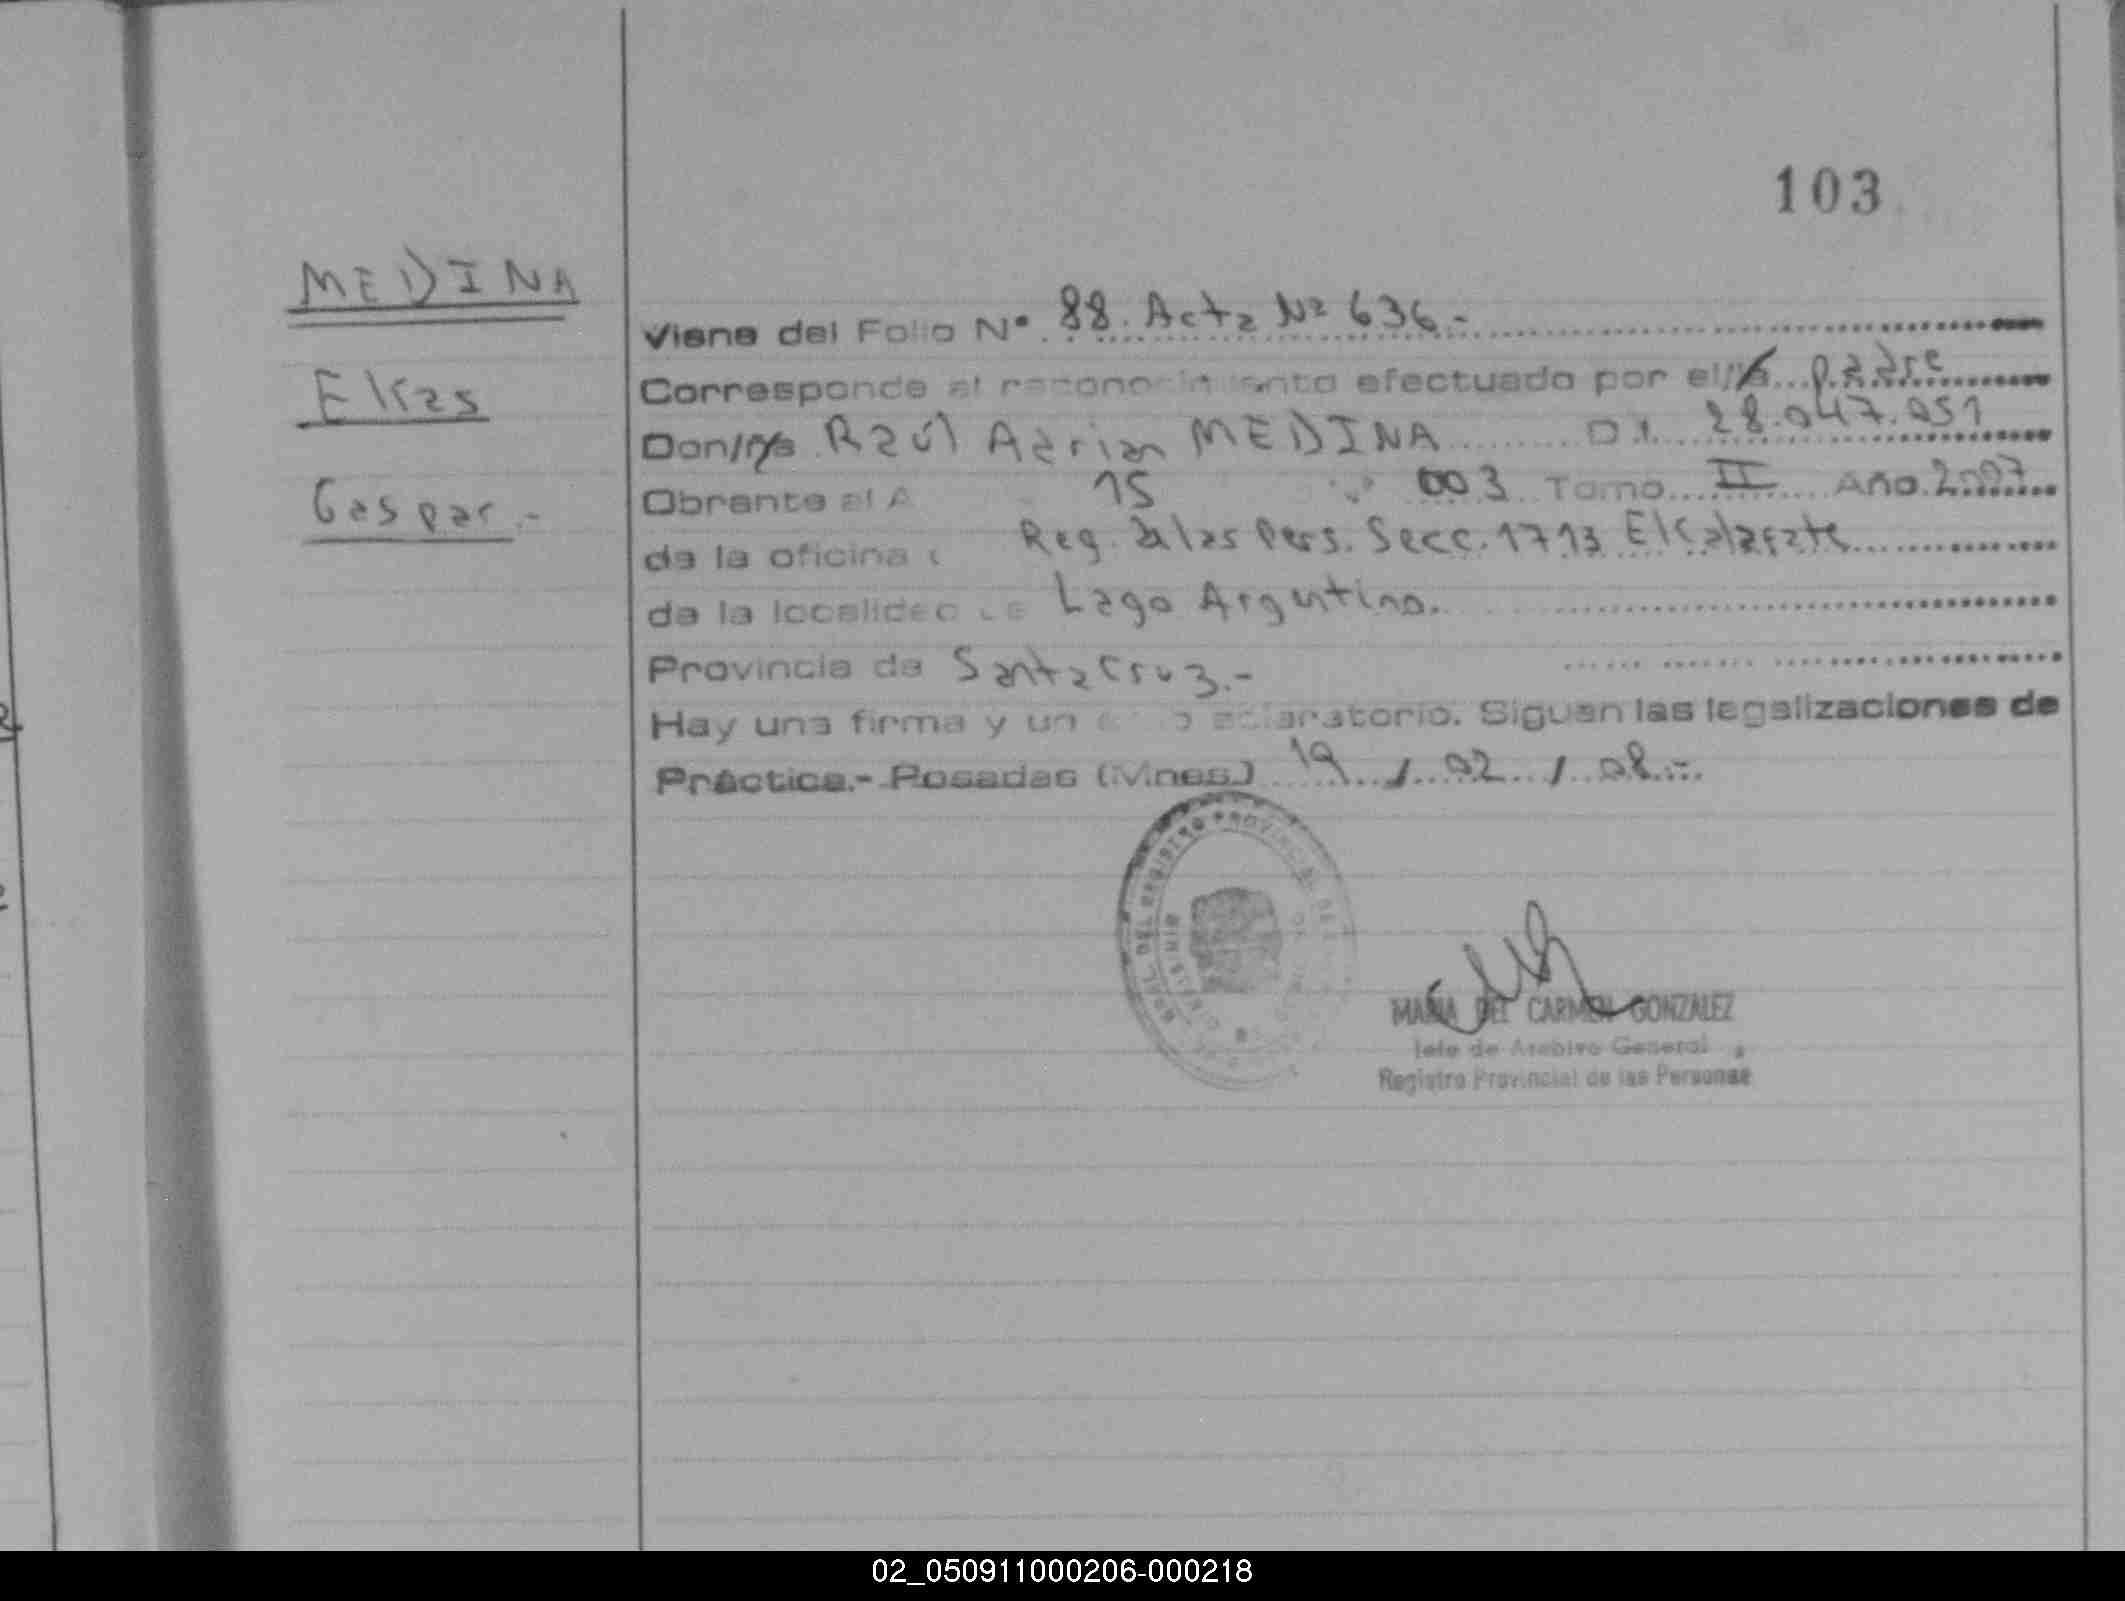 103
MEDINA
Elias
Gaspar.-
Viene del Folio Nº 88. Acta Nº 636.-
Corresponde al reconocimiento efectuado por el/la padre
Don/ña Raúl Adrian MEDINA D.I. 28.047.051
Obrante al A 15 003 Tomo II Año 2007
de la oficina Reg. de las Pers. Secc. 1713 El Calafate
de la localidad de Lago Argentino.
Provincia de Santa Cruz.-
Hay una firma y un aclaratorio. Siguen las legalizaciones de
Práctica.- Posadas (Mnes.) 19 / 02 / 08.-
RAL DEL REGISTRO PROVINCIAL DE
MARIA DEL CARMEN GONZALEZ
Jefe de Archivo General
Registro Provincial de las Personas
02_050911000206-000218